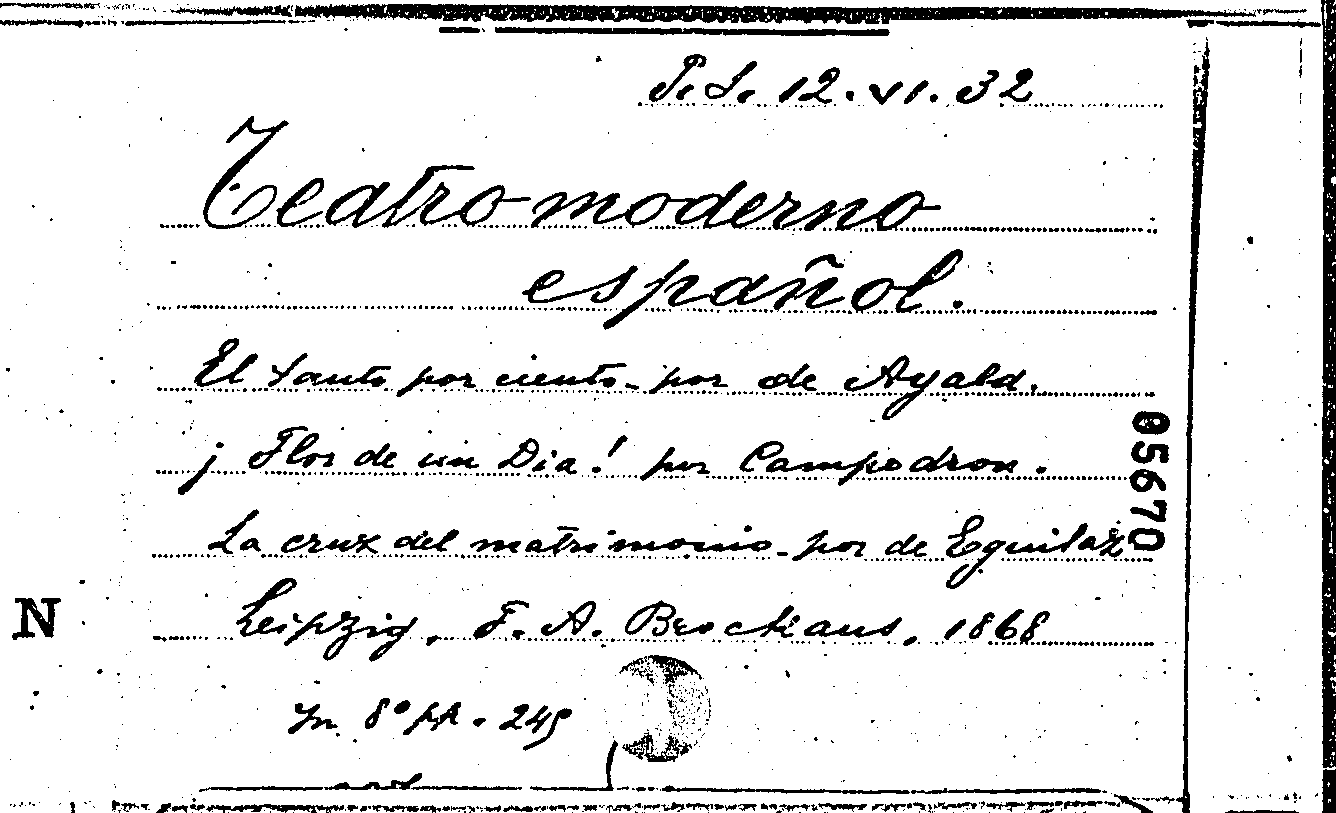 P.S. 12.VI.32
Teatro moderno
español.
El tanto por ciento - por de Ayala.
¡Flor de un Dia! por Campodron.
La cruz del matrimonio - por de Eguilaz
Leipzig, F. A. Brockaus, 1868
In 8° pp. 249
05670
N